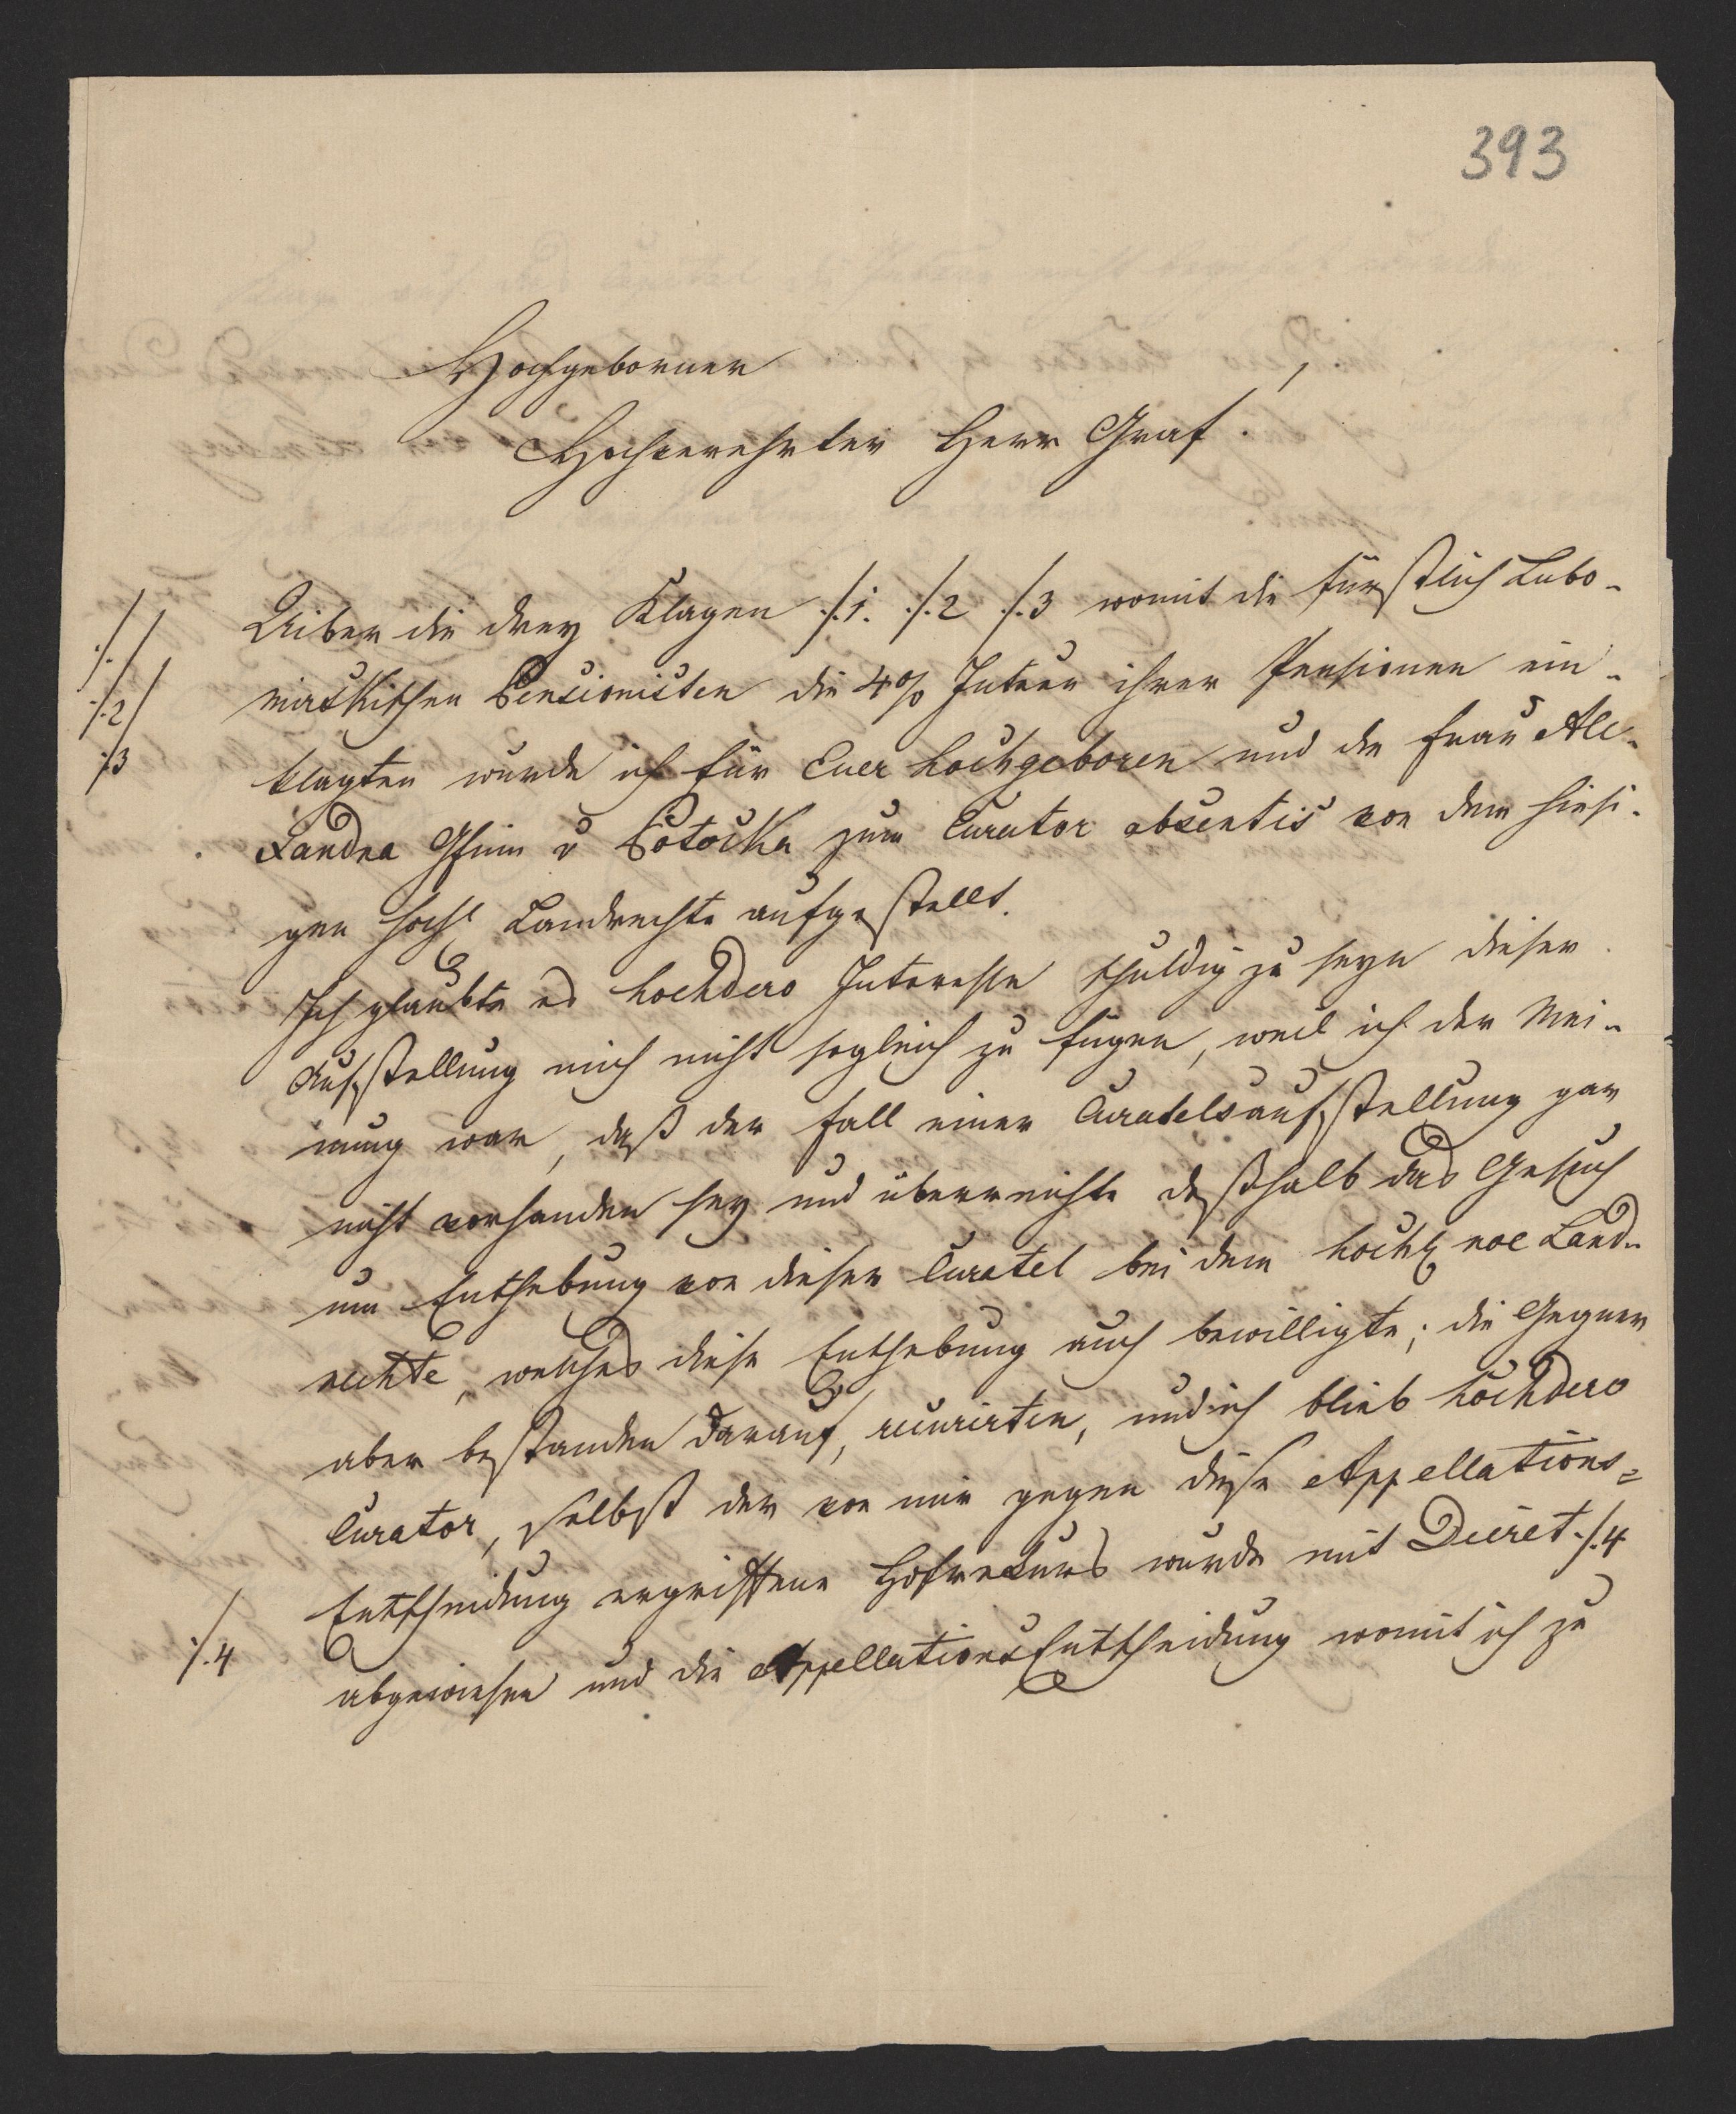 393
Hochgeborner
Hochverehrter Herr Graf!
Uiber die drey Klagen ./1. ./.2 ./.3 womit die fürstlich Lubo-
mirskischen Pensionisten die 4% Inteen ihrer Pensionen ein-
klagten wurde ich für Euer Hochgeboren und die Frau Ale-
xandra Gfinn v Potocka zum Curator absentis von dem hiesi-
gen hochl Landrechte aufgestellt.
Ich glaubte es hochdero Interesse schuldig zu seyn dieser
Aufstellung mich nicht sogleich zu fügen, weil ich der Mei-
nung war, daß der Fall einer Curatelsaufstellung gar
nicht vorhanden sey und überreichte deßhalb das Gesuch
um Enthebung von dieser Curatel bei dem hochl noe Land-
rechte, welches diese Enthebung auch bewilligte; die Gegner
aber bestanden darauf, recurirten, und ich blieb hochdero
Curator, selbst der von mir gegen diese Appellations=
Entscheidung ergriffene Hofrekurs wurde mit Decret ./.4
abgewiesen und die Appellations Entscheidung womit ich zu
./.
./.2
./3
./.4